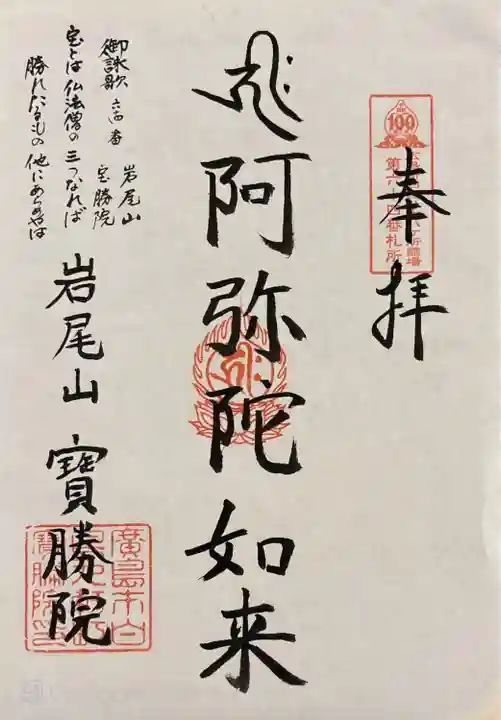 奉拝
100
第六十四番札所
阿弥陀如来
岩尾山 寶勝院
御詠歌 六四番 岩尾山 宝勝院
宝とは仏法僧の三つなれば
勝れたるもの他にあらめやは